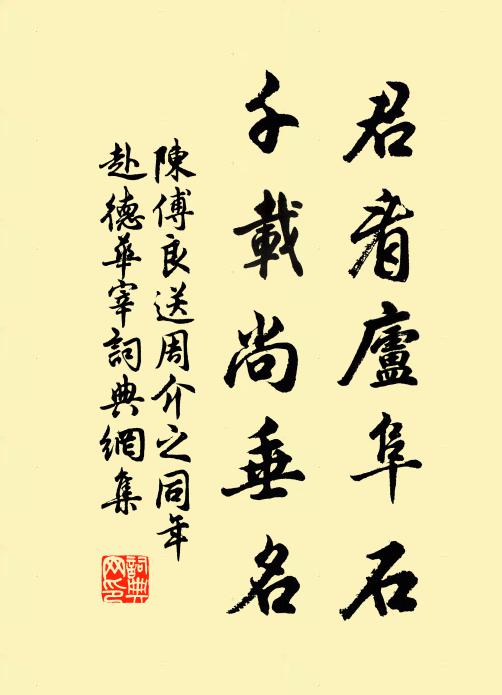 君看廬阜石
千載尚垂名
陳傅良送周介之同年
赴德華宰詞典網集
詞典网印